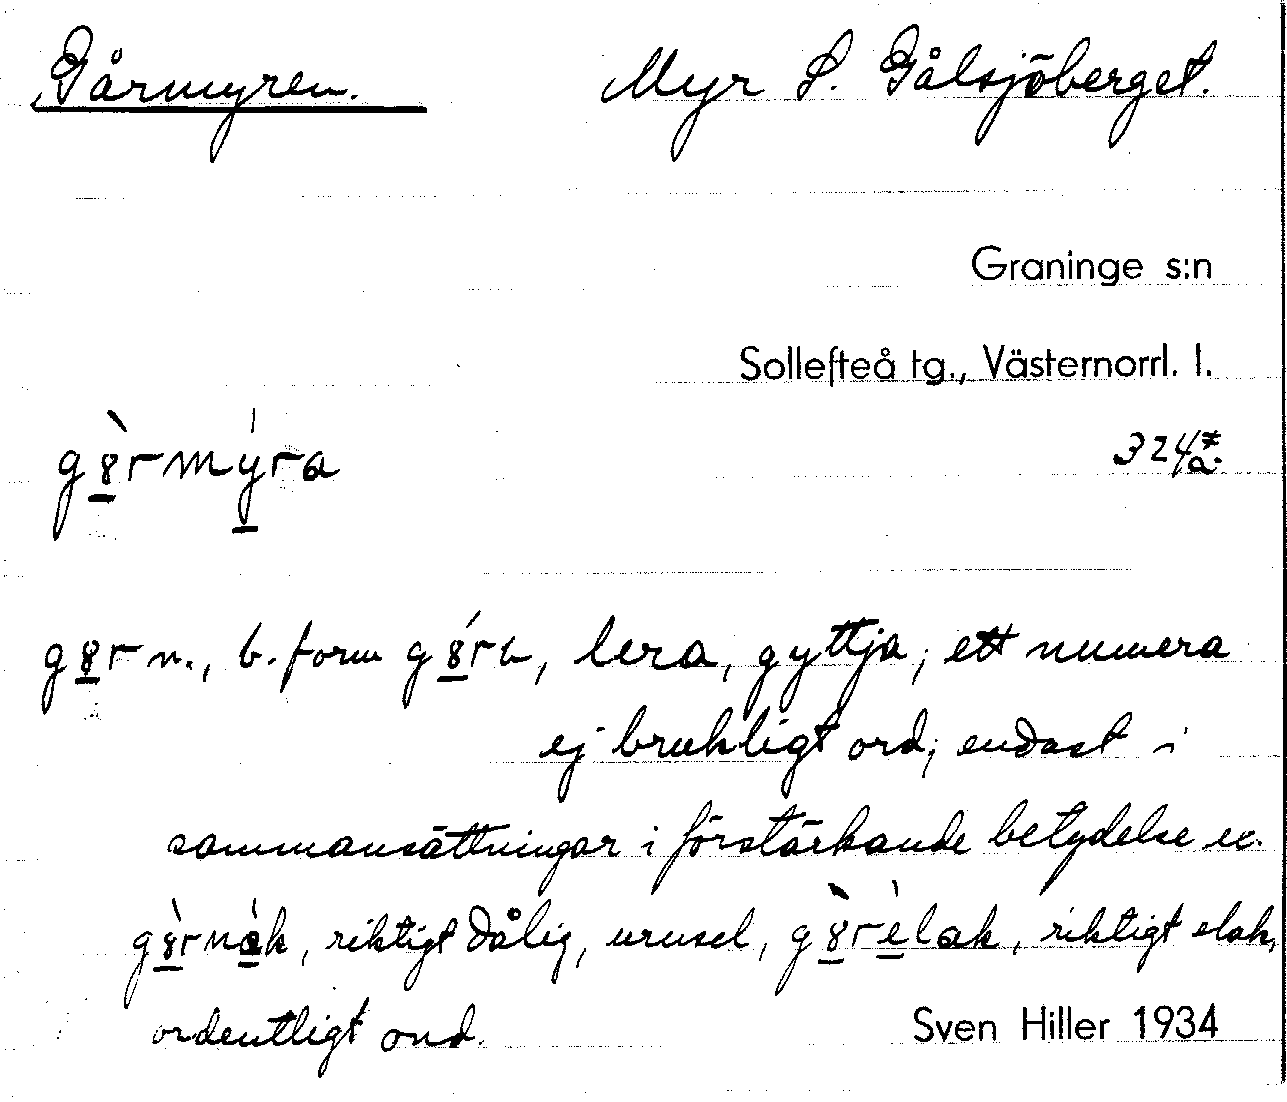 Gårmyren. Myr S. Gålsjöberget.
Graninge s:n
Sollefteå tg., Västernorrl. l.
g8̱̀rmý̱ra 324
g8̱r n., b. form g8̱́ra, lera, gyttja, ett numera
ej brukligt ord; endast i
sammansättningar i förstärkande betydelse ex.
g8̱̀rná̱k, riktigt dålig, urusel, g8̱̀ré̱lak, riktigt elak,
ordentligt ond. Sven Hiller 1934